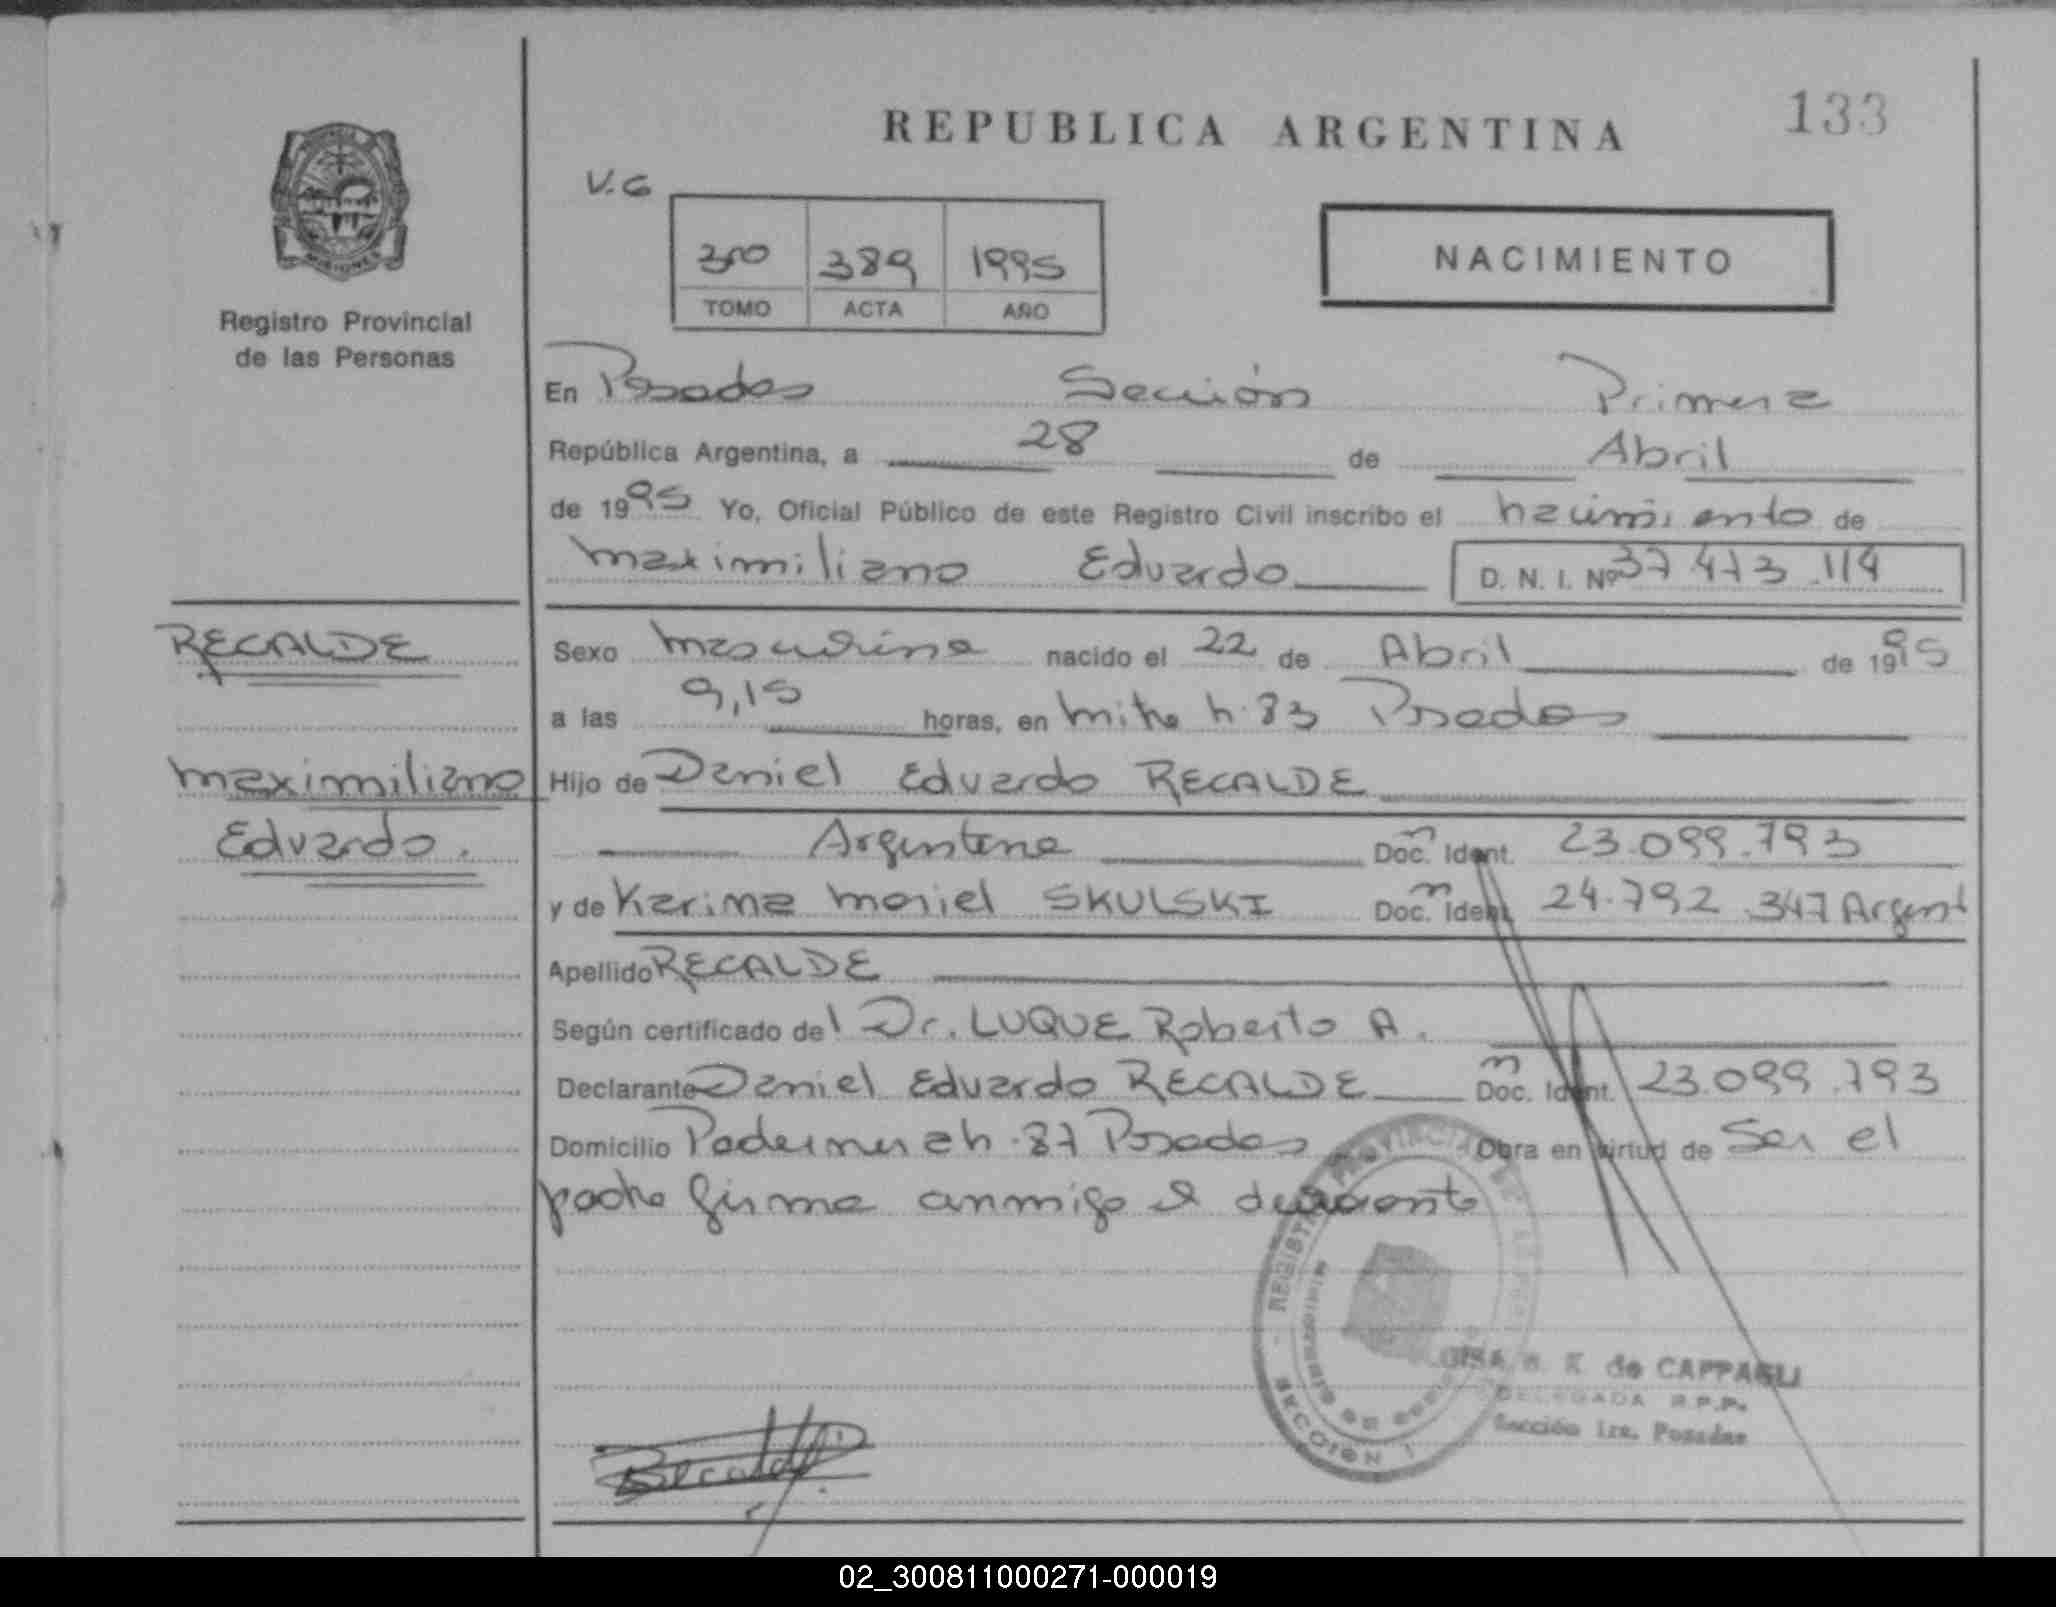 REPUBLICA ARGENTINA
133
V.G
300 389 1995
TOMO ACTA AÑO
NACIMIENTO
Registro Provincial
de las Personas
En Posadas Sección Primera
República Argentina, a 28 de Abril
de 1995 Yo, Oficial Público de este Registro Civil inscribo el nacimiento de
Maximiliano Eduardo D. N. I. Nº 37.473.114
RECALDE
Sexo masculino nacido el 22 de Abril de 1995
a las 9,15 horas, en Mitre h. 83 Posadas
Maximiliano
Hijo de Daniel Eduardo RECALDE
Eduardo.
Argentino Doc. Ident. 23.099.793
y de Karina Mariel SKULSKI Doc. Ident. 24.792.347 Argent
Apellido RECALDE
Según certificado del Dr. LUQUE Roberto A.
Declarante Daniel Eduardo RECALDE Doc. Ident. 23.099.793
Domicilio h. 87 Posadas Obra en virtud de Ser el
padre firma conmigo el
SECCION 1
de CAPPAGLI
DELEGADA R.P.P.
Sección 1ra. Posadas
02_300811000271-000019